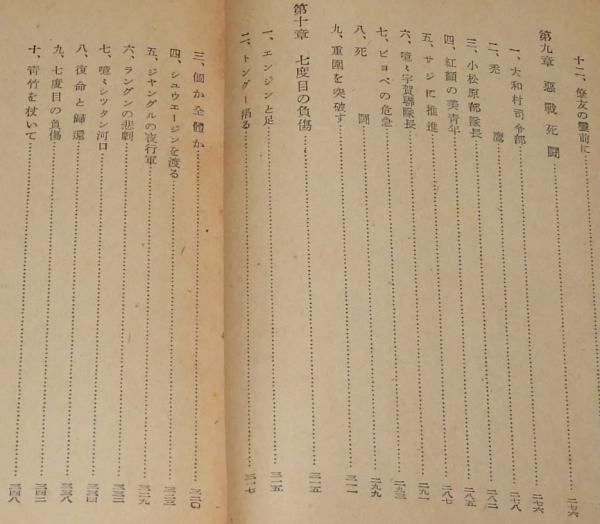 十二、僚友の靈前に……二七六
第九章 惡戰死鬪……二七六
一、大和村司令部……二七八
二、禿鷹……二八二
三、小松原部隊長……二八五
四、紅顏の美青年……二八七
五、サジに推進……二九一
六、噫々宇賀聯隊長……二九三
七、ビヨペの危急……二九九
八、死鬪……
九、重圍を突破す……三一一
第十章 七度目の負傷……三一五
一、エンジンと足……三一五
二、トングー消る……三一七
三、個か全體か……三二〇
四、シユウエージンを渡る……三二三
五、ジヤングルの夜行軍……三二九
六、ラングンの悲劇……三三二
七、噫々シツタン河口……三三四
八、復命と歸還……三三八
九、七度目の負傷……三四二
十、靑竹を杖いて……三四八